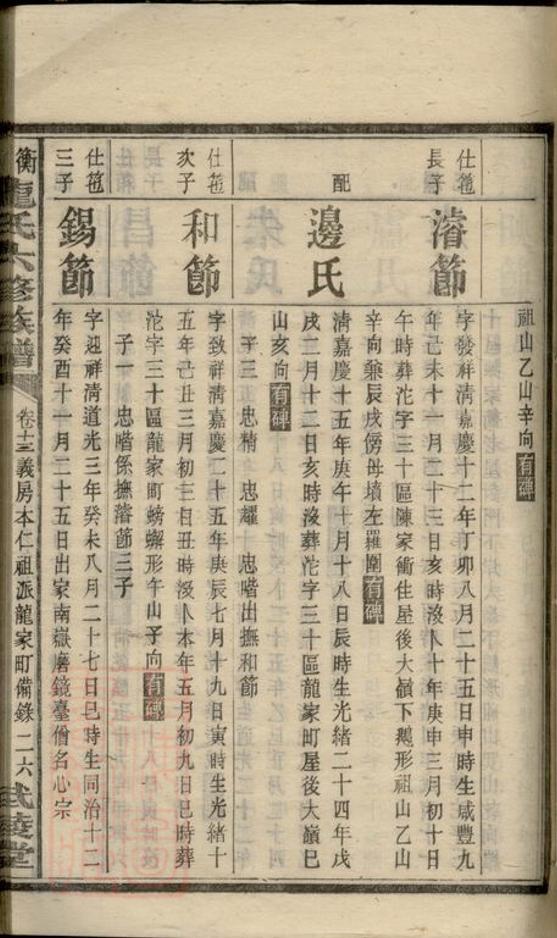 祖山乙山辛向有碑
仕苞長子
濬節
字發祥清嘉慶十二年丁卯八月二十五日申時生咸豐九
年己未十一月二十三日亥時沒卜十年庚申三月初十日
午時葬沱字三十區陳家衝住屋後大嶺下鵝形祖山乙山
辛向兼辰戌傍母墳左羅圍有碑
配
邊氏
清嘉慶十五年庚午十月十八日辰時生光緒二十四年戊
戌二月十二日亥時沒葬沱字三十區龍家町屋後大嶺巳
山亥向有碑
子三 忠精 忠耀 忠喈出撫和節
仕苞次子
和節
字致祥清嘉慶二十五年庚辰七月十九日寅時生光緒十
五年己丑三月初三日丑時沒卜本年五月初九日巳時葬
沱字三十區龍家町螃蠏形午山子向有碑
子一 忠喈係撫濬節三子
仕苞三子
錫節
字迎祥清道光三年癸未八月二十七日巳時生同治十二
年癸酉十一月二十五日出家南嶽磨鏡臺僧名心宗
衡龍氏六修族譜 卷十三義房本仁祖派龍家町備錄 二六 武陵堂